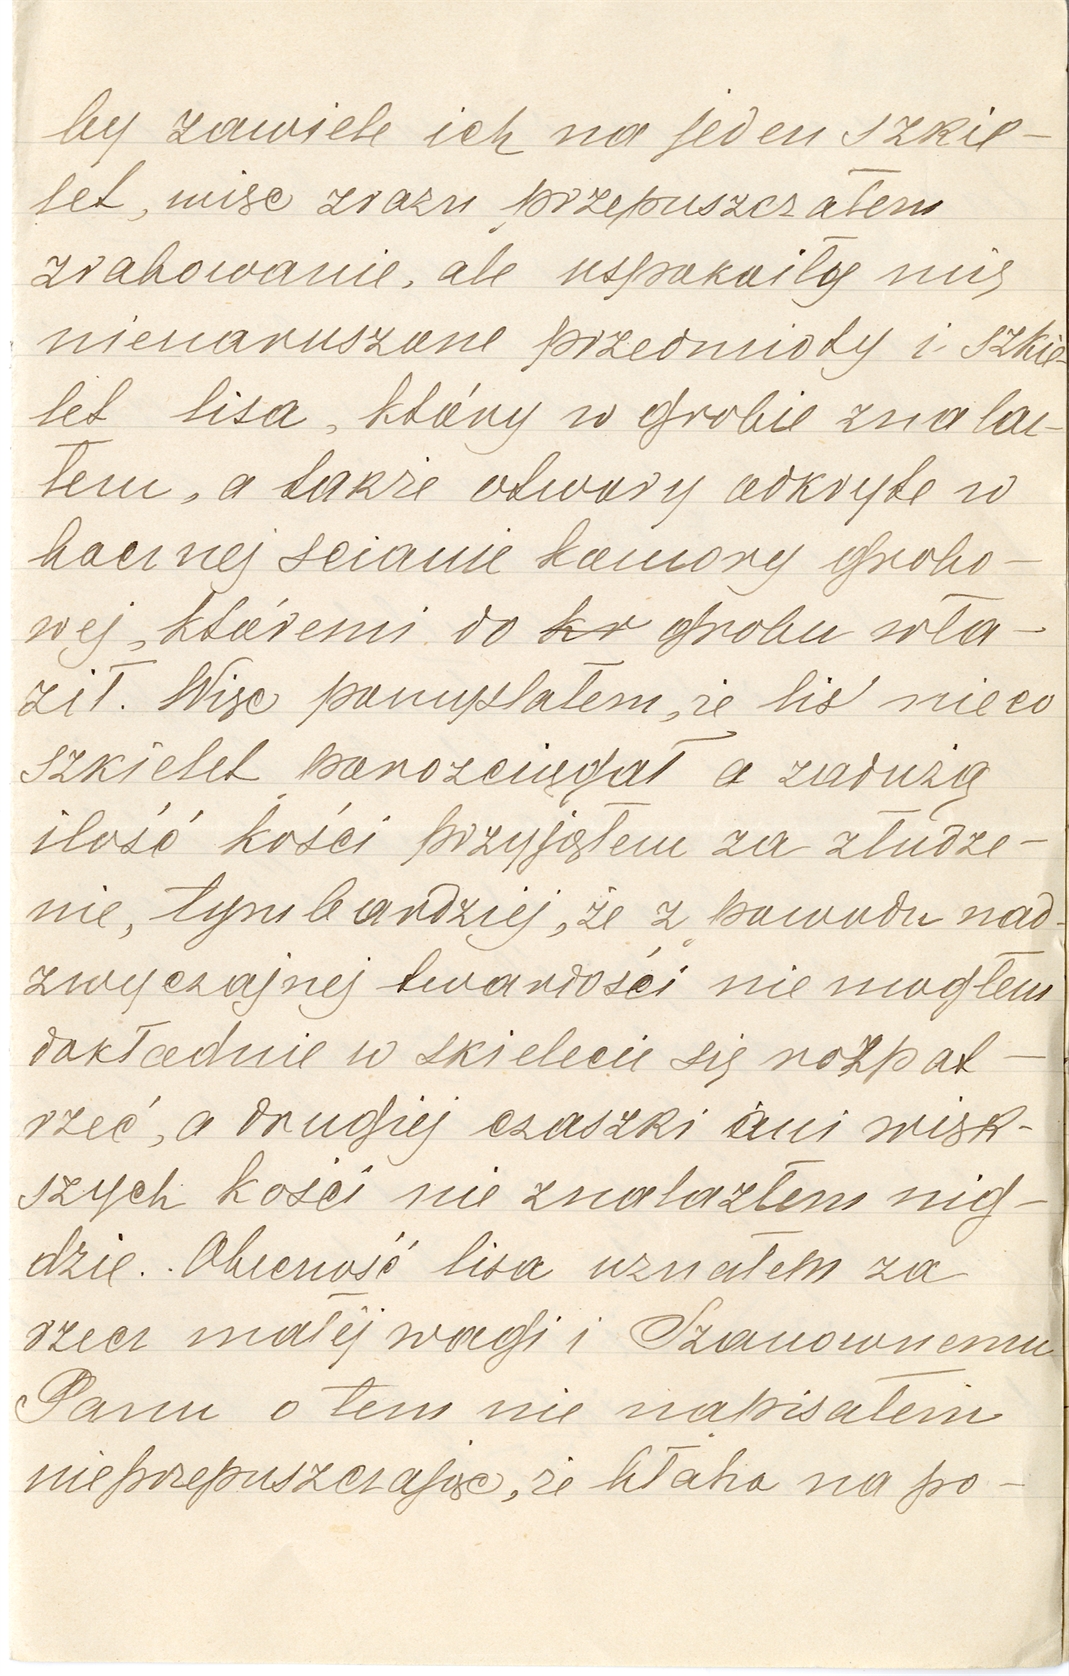 by zawiele ich na jeden szkie-
let, więc zrazu przepuszczałem
zrabowanie, ale uspokoiły mię
nienaruszone przedmioty i szkie-
let lisa, który w grobie znalaz-
łem, a także otwory odkryte w
bocznej scianie komory grobo-
wej, któremi do kr grobu wła-
ził. Więc pomyślałem, że lis nieco
szkielet porozciągał a zadużą
ilość kości przyjąłem za złudze-
nie, tymbardziej, że z powodu nad-
zwyczajnej twardości nie mogłem
dokładnie w skielecie się rozpat-
rzeć, a drugiej czaszki ani więk-
szych kości nie znalazłem nig-
dzie. Obecność lisa uznałem za
rzecz małej wagi i Szanownemu
Panu o tem nie napisałem
nieprzepuszczając, że błaha na po-